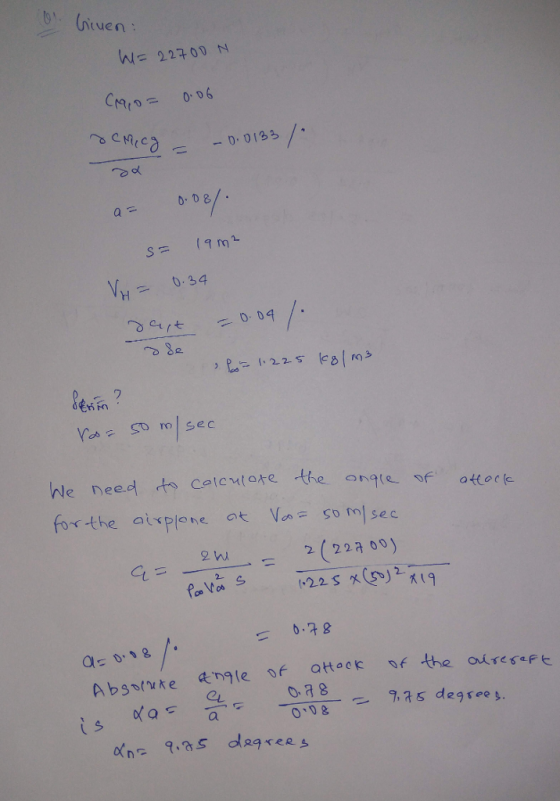 Q1. Given:
W = 22700 N
CM,0 = 0.06
∂CM,cg / ∂α = -0.0133 /°
a = 0.08/°
S = 19 m²
VH = 0.34
∂CL,t / ∂δe = 0.04 /°
, ρ∞ = 1.225 kg/m3
δtrim = ?
V∞ = 50 m/sec
We need to calculate the angle of attack
for the airplane at V∞ = 50 m/sec
CL = 2W / ρ∞V∞² S = 2(22700) / 1.225 x (50)² x 19
= 0.78
a = 0.08 /°
Absolute angle of attack of the aircraft
is αa = CL / a = 0.78 / 0.08 = 9.75 degrees.
αn = 9.75 degrees